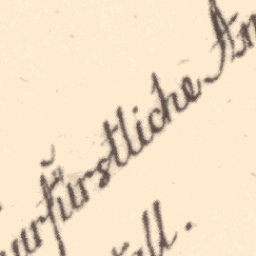 urfürstliche An
all.